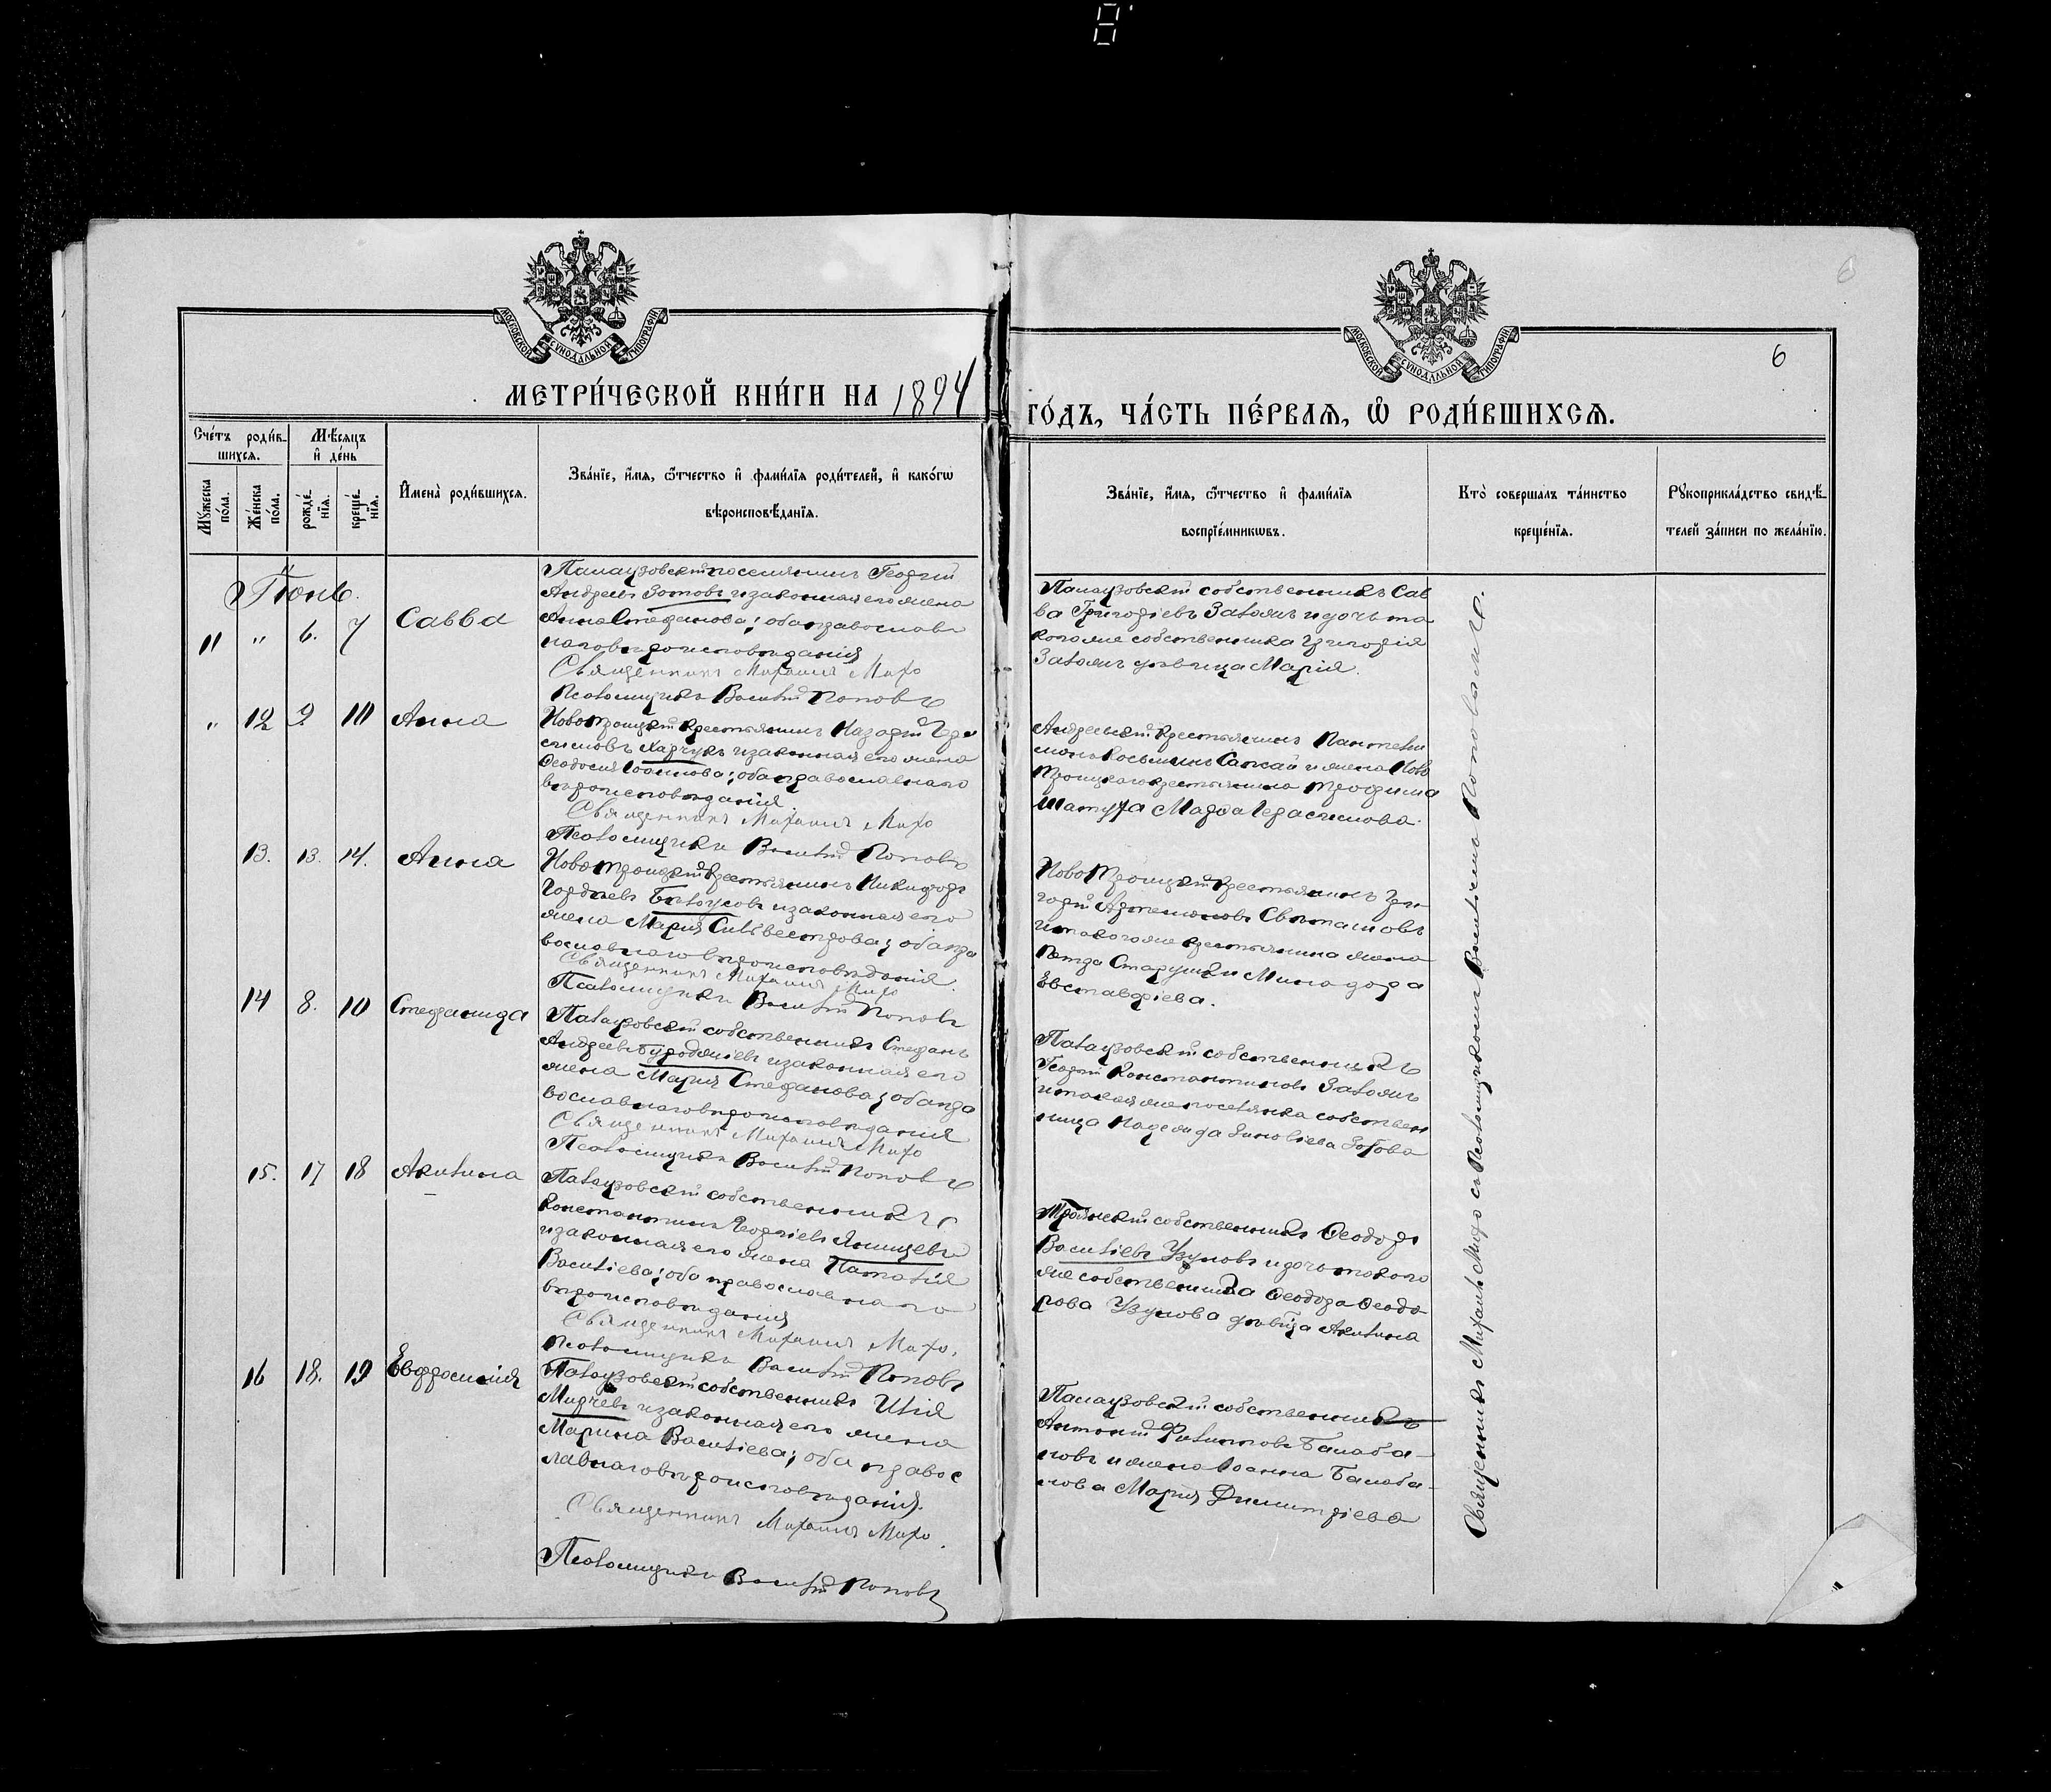 МОСКОВСКОЙ СѴНОДАЛЬНОЙ ТИПОГРАФІИ
МЕТРИ́ЧЕСКОЙ КНИ́ГИ НА 1894
Сче́тъ роди́в-
шихсѧ.
Мѣ́сѧцъ
и҆ де́нь
Мꙋ́жеска
по́ла.
Же́нска
по́ла.
рожде́-
нїѧ.
креще́-
нїѧ.
И҆мена̀ роди́вшихсѧ.
Зва́нїе, и҆́мѧ, ѻ҆́тчество и҆ фами́лїѧ роди́телей, и҆ како́гѡ
вѣроисповѣ́данїѧ.
Іюнь
11 " 6. 7 Савва
Палаузовскій поселянинъ Георгій
Андреевъ Зотовъ и законная его жена
Анна Стефанова; оба православ
наго вѣроисповѣданія
Священникъ Михаилъ Михо
Псаломщикъ Василій Поповъ
" 12 9 10 Анна
Новотроицкій крестьянинъ Назарій Гера
симовъ Харчукъ и законная его жена
Ѳеодосия Іоаннова; оба православнаго
вѣроисповѣданія
Священникъ Михаилъ Михо
Псаломщикъ Василій Поповъ
13. 13. 14. Анна
Новотроицкій крестьянинъ Никифоръ
Гордѣевъ Бѣлоусовъ и законная его
жена Марія Сильвестрова; оба пра
вославнаго вѣроисповѣданія.
Священникъ Михаилъ Михо
Псаломщикъ Василій Поповъ
14 8. 10 Стефанида
Палаузовскій собственникъ Стефанъ
Андреевъ и законная его
жена Марія Стефанова; оба пра
вославнаго вѣроисповѣданія
Священникъ Михаилъ Михо
Псаломщикъ Василій Поповъ
15. 17 18 Акилина
Палаузовскій собственникъ
Константинъ Георгіевъ Янищевъ
и законная его жена Наталія
Василіева; оба православнаго
вѣроисповѣданія
Священникъ Михаилъ Михо.
Псаломщикъ Василій Поповъ
16 18. 19 Евфросинія
Палаузовскій собственникъ Илія
Мирчевъ и законная его жена
Марина Василіева; оба правос
лавнаго вѣроисповѣданія.
Священникъ Михаилъ Михо.
Псаломщикъ Василій Поповъ
6
МОСКОВСКОЙ СѴНОДАЛЬНОЙ ТИПОГРАФІИ
ГО́ДЪ, ЧА́СТЬ ПЕ́РВАѦ, Ѡ҆ РОДИ́ВШИХСѦ.
Зва́нїе, и҆́мѧ, ѻ҆́тчество и҆ фами́лїѧ
воспрїе́мникѡвъ.
Кто̀ соверша́лъ та́инство
креще́нїѧ.
Рꙋкоприкла́дство свидѣ́-
телей за́писи по жела́нїю.
Палаузовскій собственникъ Сав
ва Григоріевъ Заволжъ и дочь та
кого же собственника Григорія
Заволжъ дѣвица Марія.
Андреевскій крестьянинъ Пантелеи
монъ Косьминъ Сапсай и жена Ново
троицкаго крестьянина Трофима
Шатура Марфа Герасимова.
Новотроицкій крестьянинъ Гри
горій Артемовъ
и такого же крестьянина жена
Петра Минадора
Евставфіева.
Палаузовскій собственникъ
Георгій Константиновъ Заволжъ
и такая же поселянка собствен
ница Надежда Зиновіева Зотова
Троянскій собственникъ Ѳеодоръ
Василіевъ Узуновъ и дочь такого
же собственника Ѳеодора Ѳеодо-
рова Узунова дѣвица Акилина
Палаузовскій собственникъ
Антоній Филипповъ Балаба-
новъ и жена Іоанна Балаба-
нова Марія Димитріева
Священникъ Михаилъ Михо съ Псаломщикомъ Василіемъ Поповымъ.